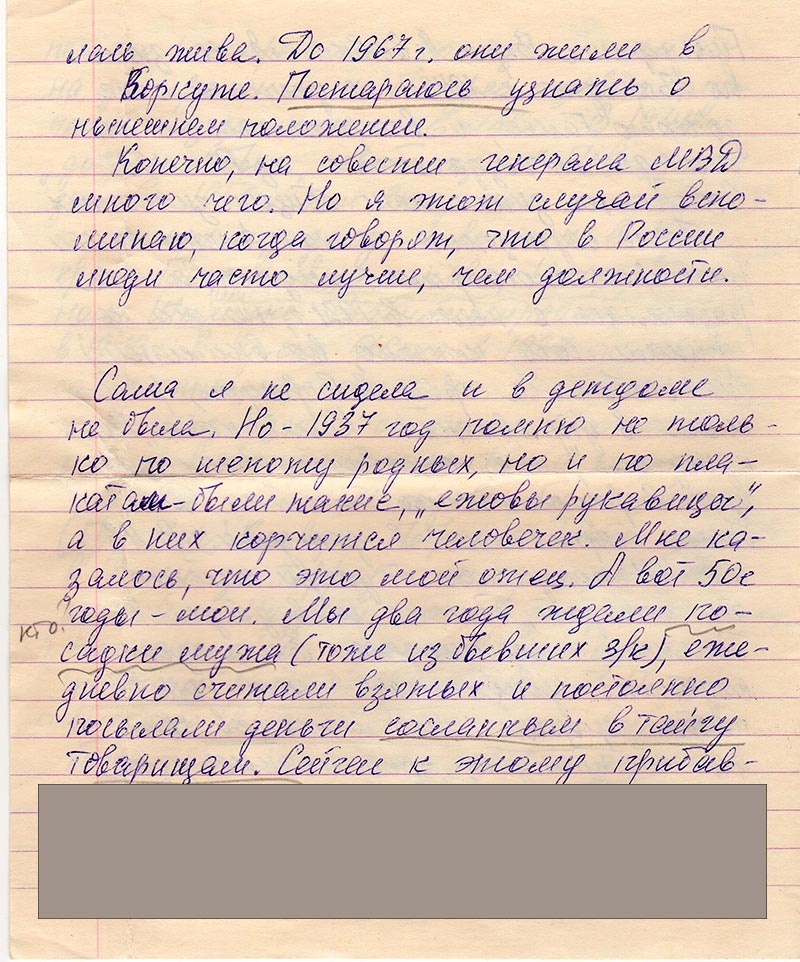 лась жива. До 1967 г. они жили в
Воркуте. Постараюсь узнать о
нынешнем положении.
Конечно, на совести генерала МВД
много чего. Но я этот случай вспо-
минаю, когда говорят, что в России
люди часто лучше, чем должности.
Сама я не сидела и в детдоме
не была. Но - 1937 год помню не толь-
ко по шепоту родных, но и по пла-
катам - были такие, „ежовы рукавицы",
а в них корчится человечек. Мне ка-
залось, что это мой отец. А вот 50е
годы - мои. Мы два года ждали по-
кто?
садки мужа (тоже из бывших з/к), еже-
дневно считали взятых и постоянно
посылали деньги сосланным в тайгу
товарищам. Сейчас к этому прибав-